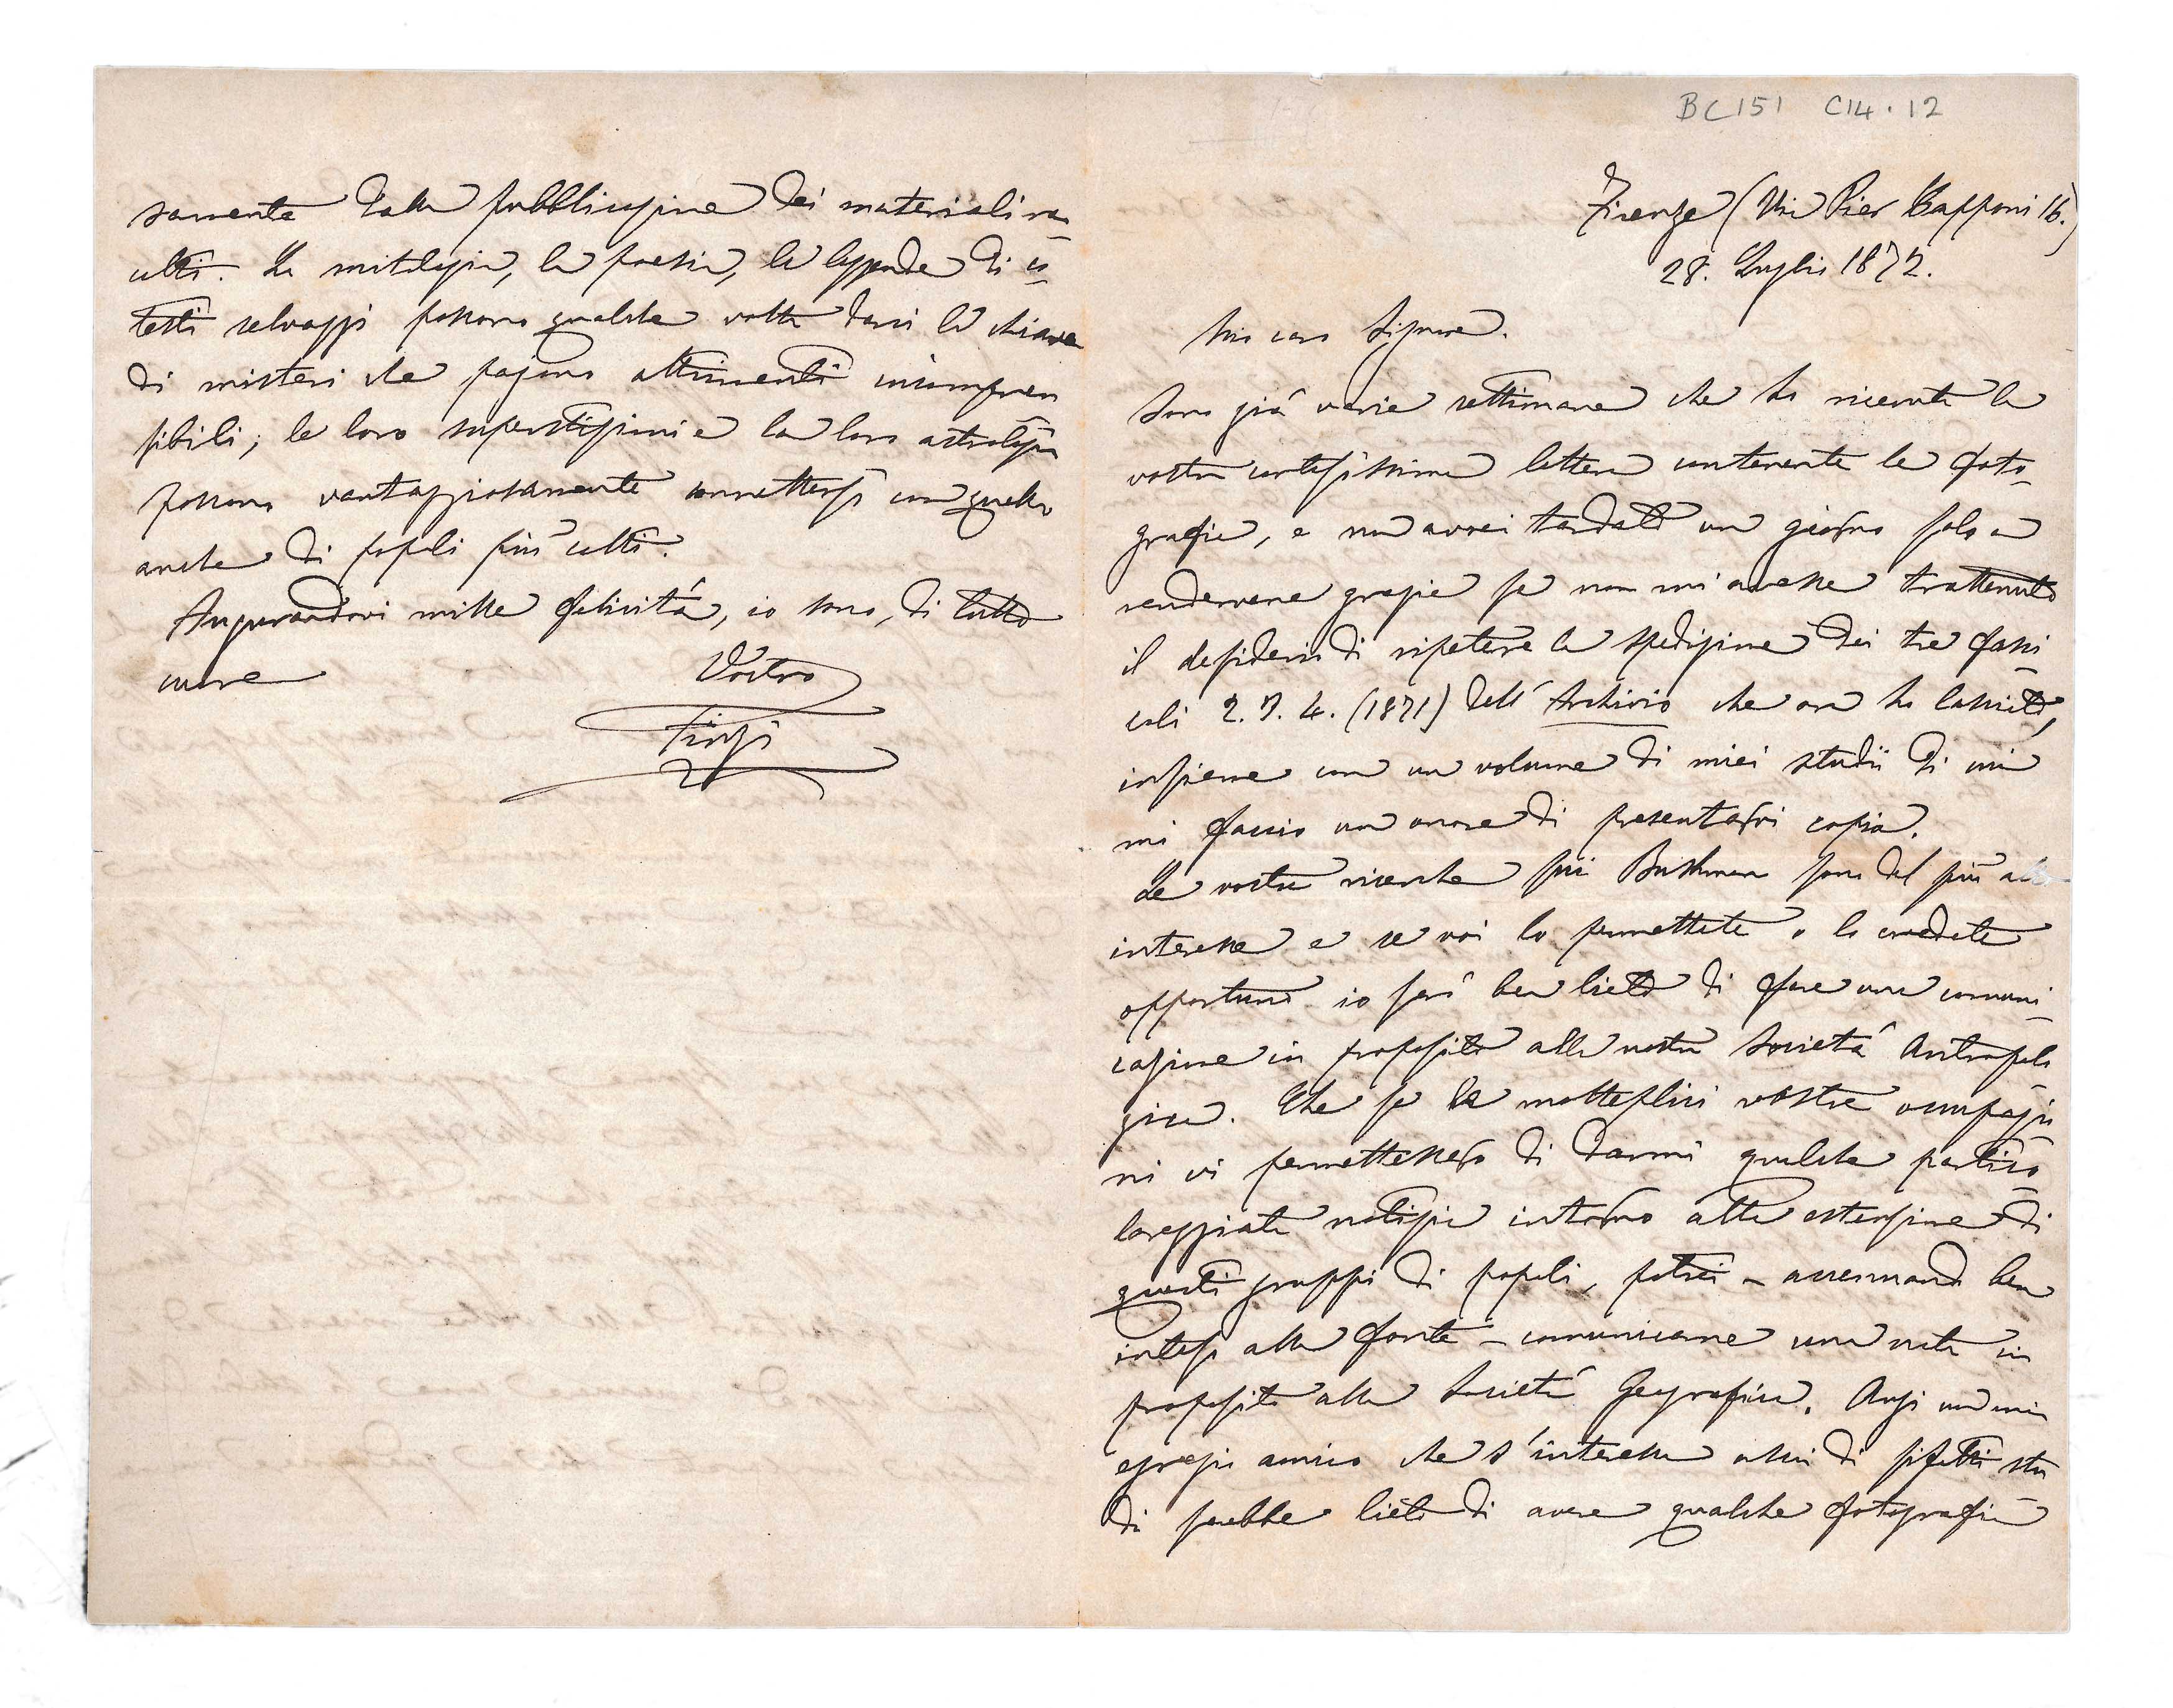 BC151 C14.12
Firenze (Via Pier Capponi 16.)
28. Luglio 1872.
Mio caro Signore.
Sono già varie settimane che ho ricevuta la
vostra cortesissima lettera contenente le foto-
grafie, e non avrei tardato un giorno solo a
rendervene grazie se non mi avesse trattenuto
il desiderio di ripetere la spedizione dei tre fasci-
coli 2. 3. 4. (1871) dell'Archivio che ora ho
insieme con un volume di miei studii di cui
mi faccio un onore di presentarvi copia.
Le vostre ricerche sui Bushman sono del più
interesse e se voi lo permettete o lo credete
opportuno io sarò ben lieto di fare una comuni-
cazione in proposito alla nostra Società Antropolo
gica. Che se le molteplici vostre occupazio
ni vi permettessero di darmi qualche partico-
lareggiata notizia intorno alla estensione di
questi gruppi di popoli, potrei - accennando ben
inteso alla fonte - comunicarne una nota in
proposito alla Società Geografica. Anzi un mio
egregio amico che s'interessa assai di siffatti stu
di sarebbe lieto di avere qualche fotografia
samente dalla pubblicazione dei materiali rac
colti. La mitologia, la poesia, le leggende di co-
testi selvaggi possono qualche volta darci la chiave
di misteri che pajono altrimenti incompren
sibili; le loro superstizioni e la loro astrologia
possono vantaggiosamente connettersi con quelle
anche di popoli più colti.
Augurandovi mille felicità, io sono, di tutto
cuore
Vostro
Finzi